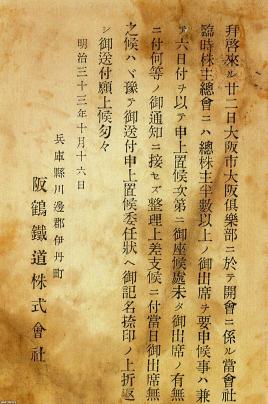 拜啓來ル廿二日大阪市大阪俱樂部ニ於テ開會ニ係ル當會社
臨時株主總會ニハ總株主半數以上ノ御出席ヲ要申候事ハ兼
テ六日付ヲ以テ申上置候次第ニ御座候處未タ御出席ノ有無
ニ付何等ノ御通知ニ接セズ整理上差支候ニ付當日御出席無
之候ハヾ豫テ御送付申上置候委任狀ヘ御記名捺印ノ上折返
シ御送付願上候匆々
明治三十三年十月十六日
兵庫縣川邊郡伊丹町
阪鶴鐵道株式會社